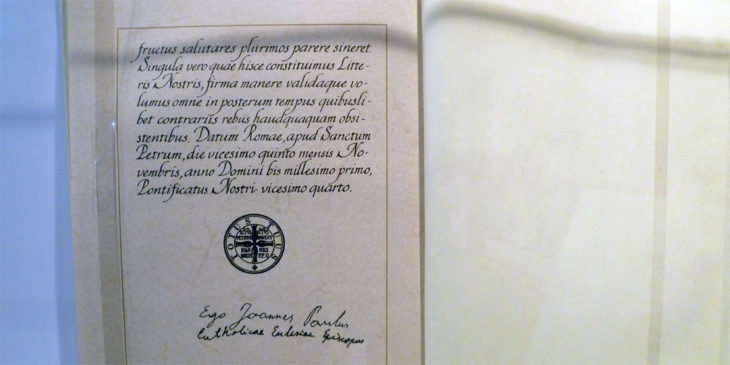 fructus salutares plurimos parere sineret.
Singula vero quae hisce constituimus Litte-
ris Nostris, firma manere validaque vo-
lumus omne in posterum tempus quibusli-
bet contrariis rebus haudquaquam obsi-
stentibus. Datum Romae, apud Sanctum
Petrum, die vicesimo quinto mensis No-
vembris, anno Domini bis millesimo primo,
Pontificatus Nostri vicesimo quarto.
TOTUS TUUS
Ego Joannes Paulus
Catholicae Ecclesiae Episcopus